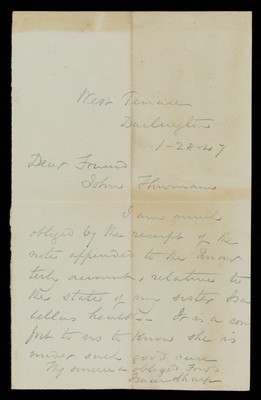 West Terrace
Darlington
1-28-47
Dear Friend
John Thurnam
I am much
obliged by the receipt of the
note appended to the Quar
terly account, relative to
the state of my sister Isa
bellas health - It is a com
fort to us to know she is
under such good care
Thy sincere & obliged Frd
Isaac Sharp